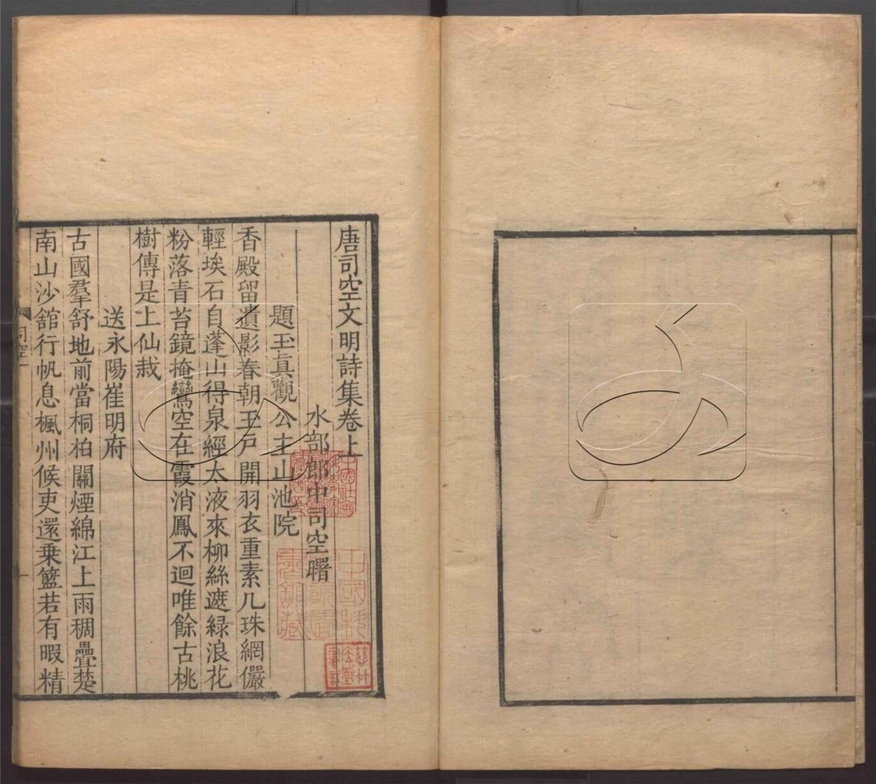 唐司空文明詩集卷上
水部郎中司空曙
題玉真觀公主山池院
香殿留遺影春朝玉戶開羽衣重素几珠網儼
輕埃石自蓬山得泉經太液來柳絲遮緑浪花
粉落青苔鏡掩鸞空在霞消鳳不迴唯餘古桃
樹傳是上仙栽
送永陽崔明府
古國羣舒地前當桐柏關煙綿江上雨稠疊楚
南山沙舘行帆息楓州候吏還乗籃若有暇精
司空
一